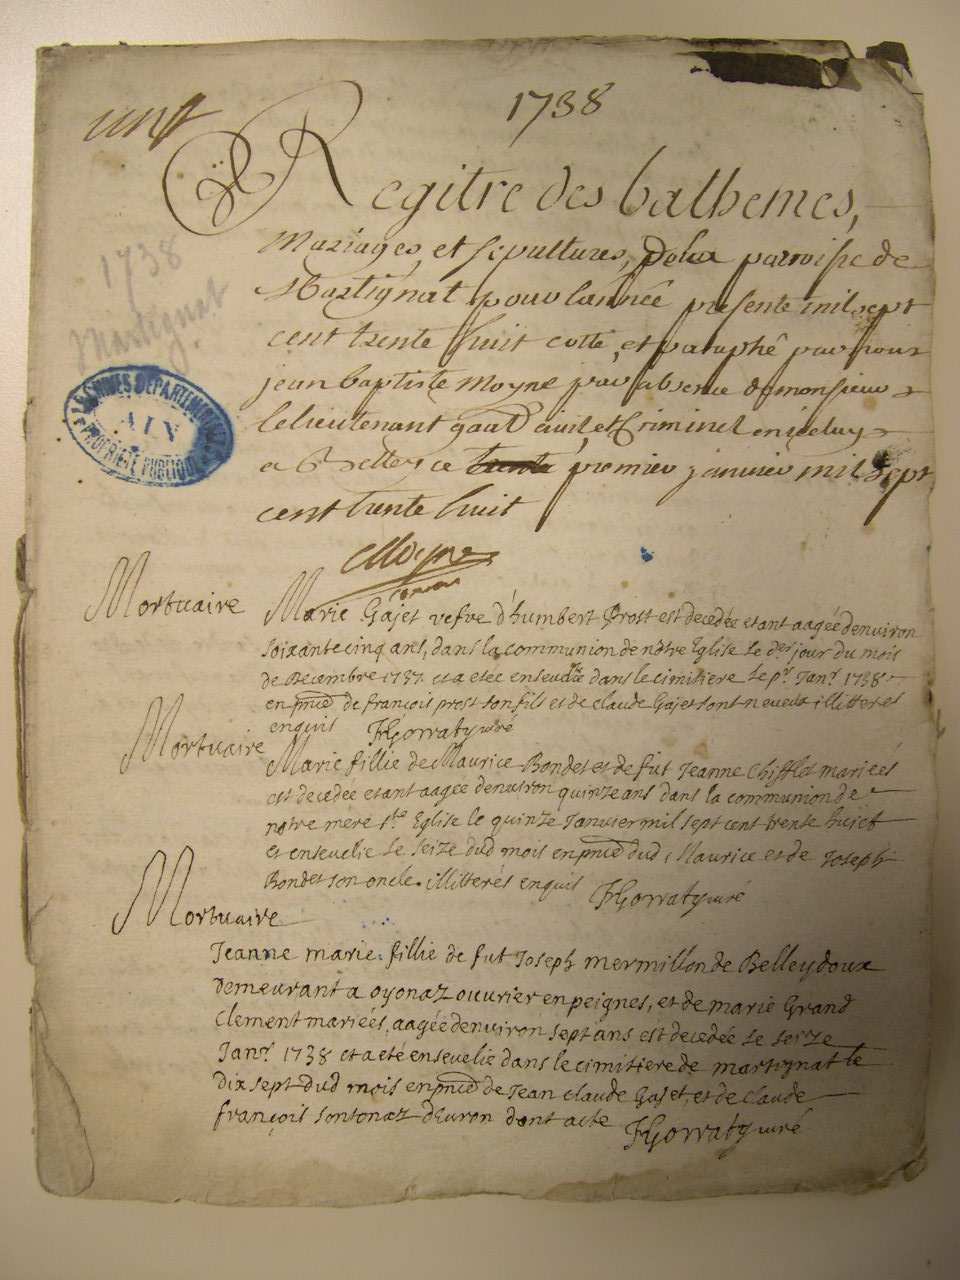 1738
Regitre des bathemes,
Mariages, et sepultures, de la parroisse de
Martignat pour lannee presente mil sept
cent trente huit cotté, et paraphé par nous
jean baptiste Moyne par absence de monsieur
le lieutenant gnāl civil et Criminel
a Belley ce premier janvier mil sept
cent trente huit
CMoyne
1738
Martignat
ARCHIVES DEPARTEMENTALES
AIN
PROPRIÉTÉ PUBLIQUE
Mortuaire
Marie Gajet vefve d'humbert Prost est decedée etant aagée denviron
soixante cinq ans, dans la communion de nôtre Eglise le der jour du mois
de Decembre 1737. et a etée ensevelie dans le cimitiere le pr. Janr. 1738
en pnce de françois prost son fils et de claude Gajet son neveux illitteres
enquis JGorraty curé
Mortuaire
Marie fillie de Maurice Bondet et de fut Jeanne Chifflet mariées
est decedée etant aagée denviron quinze ans dans la communion de
notre mere ste Eglise le quinze Janvier mil sept cent trente huict
et ensevelie le seize dud mois en pnce dud Maurice et de Joseph
Bondet son oncle. illitterés enquis JGorraty curé
Mortuaire
Jeanne marie fillie de fut Joseph mermillon de Belleydoux
demeurant a oyonaz ouvrier en peignes, et de marie Grand
Clement mariées, aagée denviron sept ans est decedée le seize
Janr. 1738 et a eté ensevelie dans le cimitiere de martignat le
dix sept dud mois en pnce de Jean Claude Gajet, et de Claude
françois sontonaz d'Evron dont acte JGorraty curé